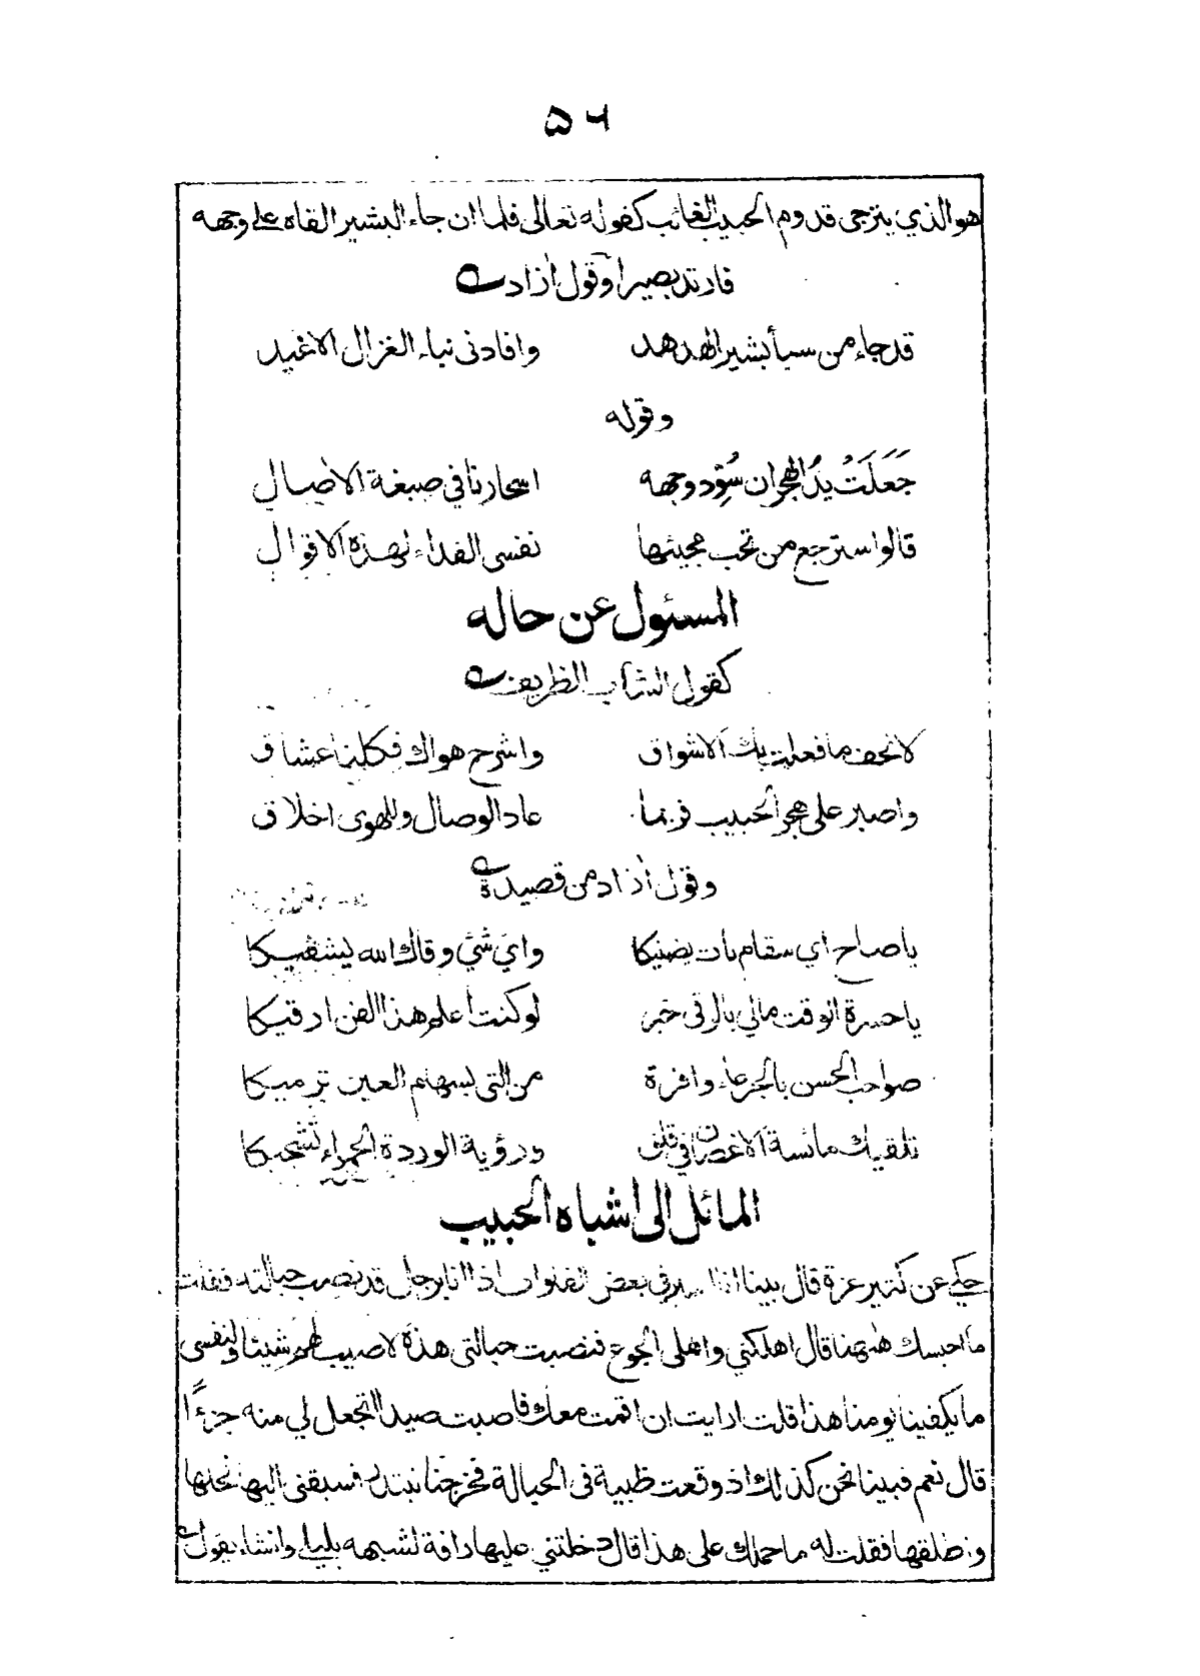 ۵۶
هو الذي يترجى قدوم الحبيب الغائب كقوله تعالى فلما ان جاء البشير القاه على وجهه
فارتد بصيرا وقول ازاد
قد جاء من سبأ بشير الهدهد وافادنى نباء الغزال الاغيد
وقوله
جَعَلَتْ يدُ الهجران سُوِّد وجهه اسحارنا في صبغة الاصال
قالوا سترجع من تحب مجيئها نفسى الفداء لهذه الاقوال
المسئول عن حاله
كقول الشاب الظريف
لا تخف ما فعلت بك الاشواق واشرح هواك فكلنا عشاق
واصبر على هجر الحبيب فربما عاد الوصال وللهوى اخلاق
وقول اذاد من قصيدة
يا صاح اي سقام بات يضنيكا واي شئ وقاك الله يشفيكا
يا حسرة الوقت مالي بالرقى خبر لو كنت اعلم هذا الفن ارقيكا
صواحب الحسن بالجرعاء وافرة من التى بسهام العين ترميكا
تلقيك مائسة الاغصان في قلق ورؤية الوردة الحمراء تشجيكا
المائل الى اشباه الحبيب
حكي عن كثير عزة قال بينا انا اسير فى بعض الفلوات اذا انا برجل قد نصب حبالته فقلت
ما احبسك ههنا قال اهلكني واهلى الجوع فنصبت حبالتى هذه لاصيب لهم شيئا ولنفسى
ما يكفينا يومنا هذا قلت ارايت ان اقمت معك فاصبت صيدا اتجعل لي منه جزءًا
قال نعم فبينا نحن كذلك اذ وقعت ظبية فى الحبالة فخرجنا نبتدر فسبقنى اليها فحلها
واطلقها فقلت له ما حملك على هذا قال دخلتني عليها رافة لشبهها بليلى وانشاء يقول